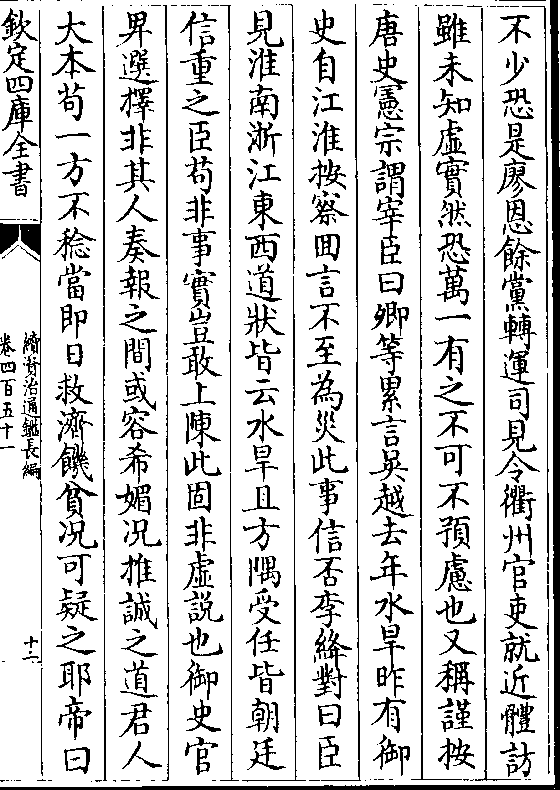 不少恐是廖恩餘黨轉運司見令衢州官吏就近體訪
雖未知虛實然恐萬一有之不可不預慮也又稱謹按
唐史憲宗謂宰臣曰卿等累言吳越去年水旱昨有御
史自江淮按察回言不至為災此事信否李絳對曰臣
見淮南浙江東西道狀皆云水旱且方隅受任皆朝廷
信重之臣苟非事實豈敢上陳此固非虛説也御史官
畀選擇非其人奏報之間或容希媚况推誠之道君人
大本苟一方不稔當即日救濟饑貧况可疑之耶帝曰
欽定四庫全書
續資治通鑑長編
卷四百五十一
十二